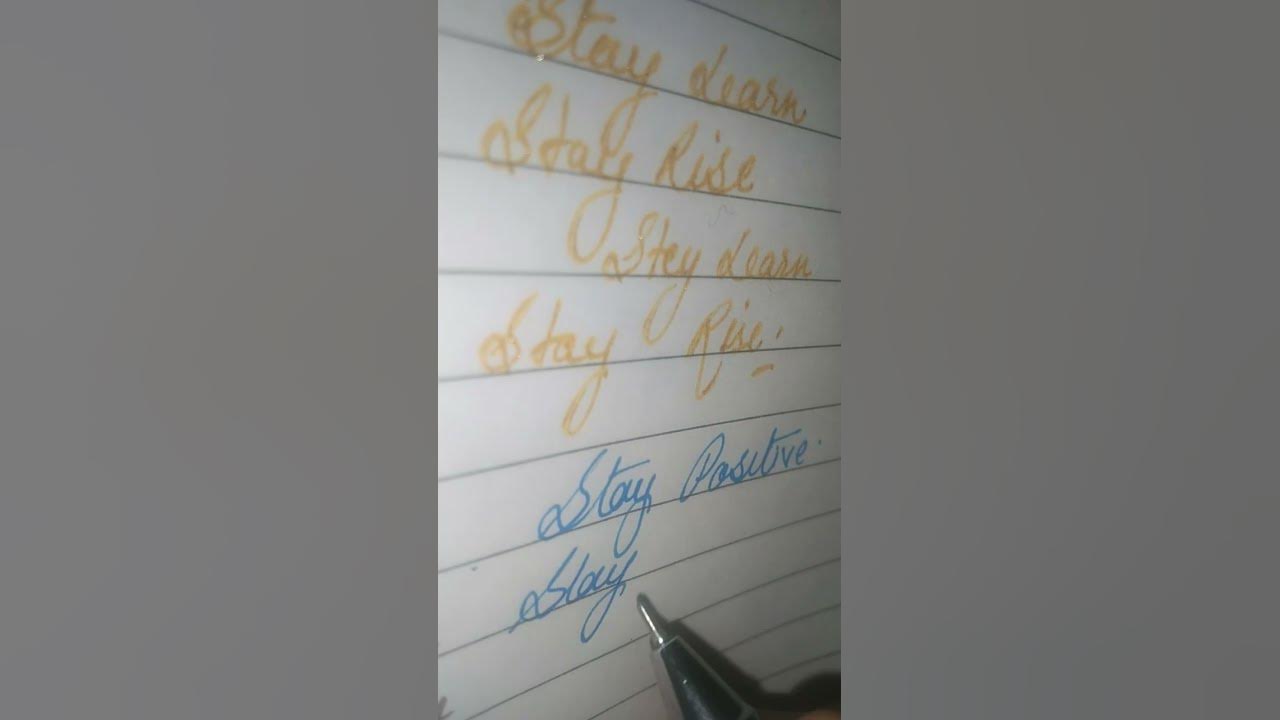 Stay Learn
Stay Rise
Stey Learn
Stay Rise.
Stay Positive.
Stay